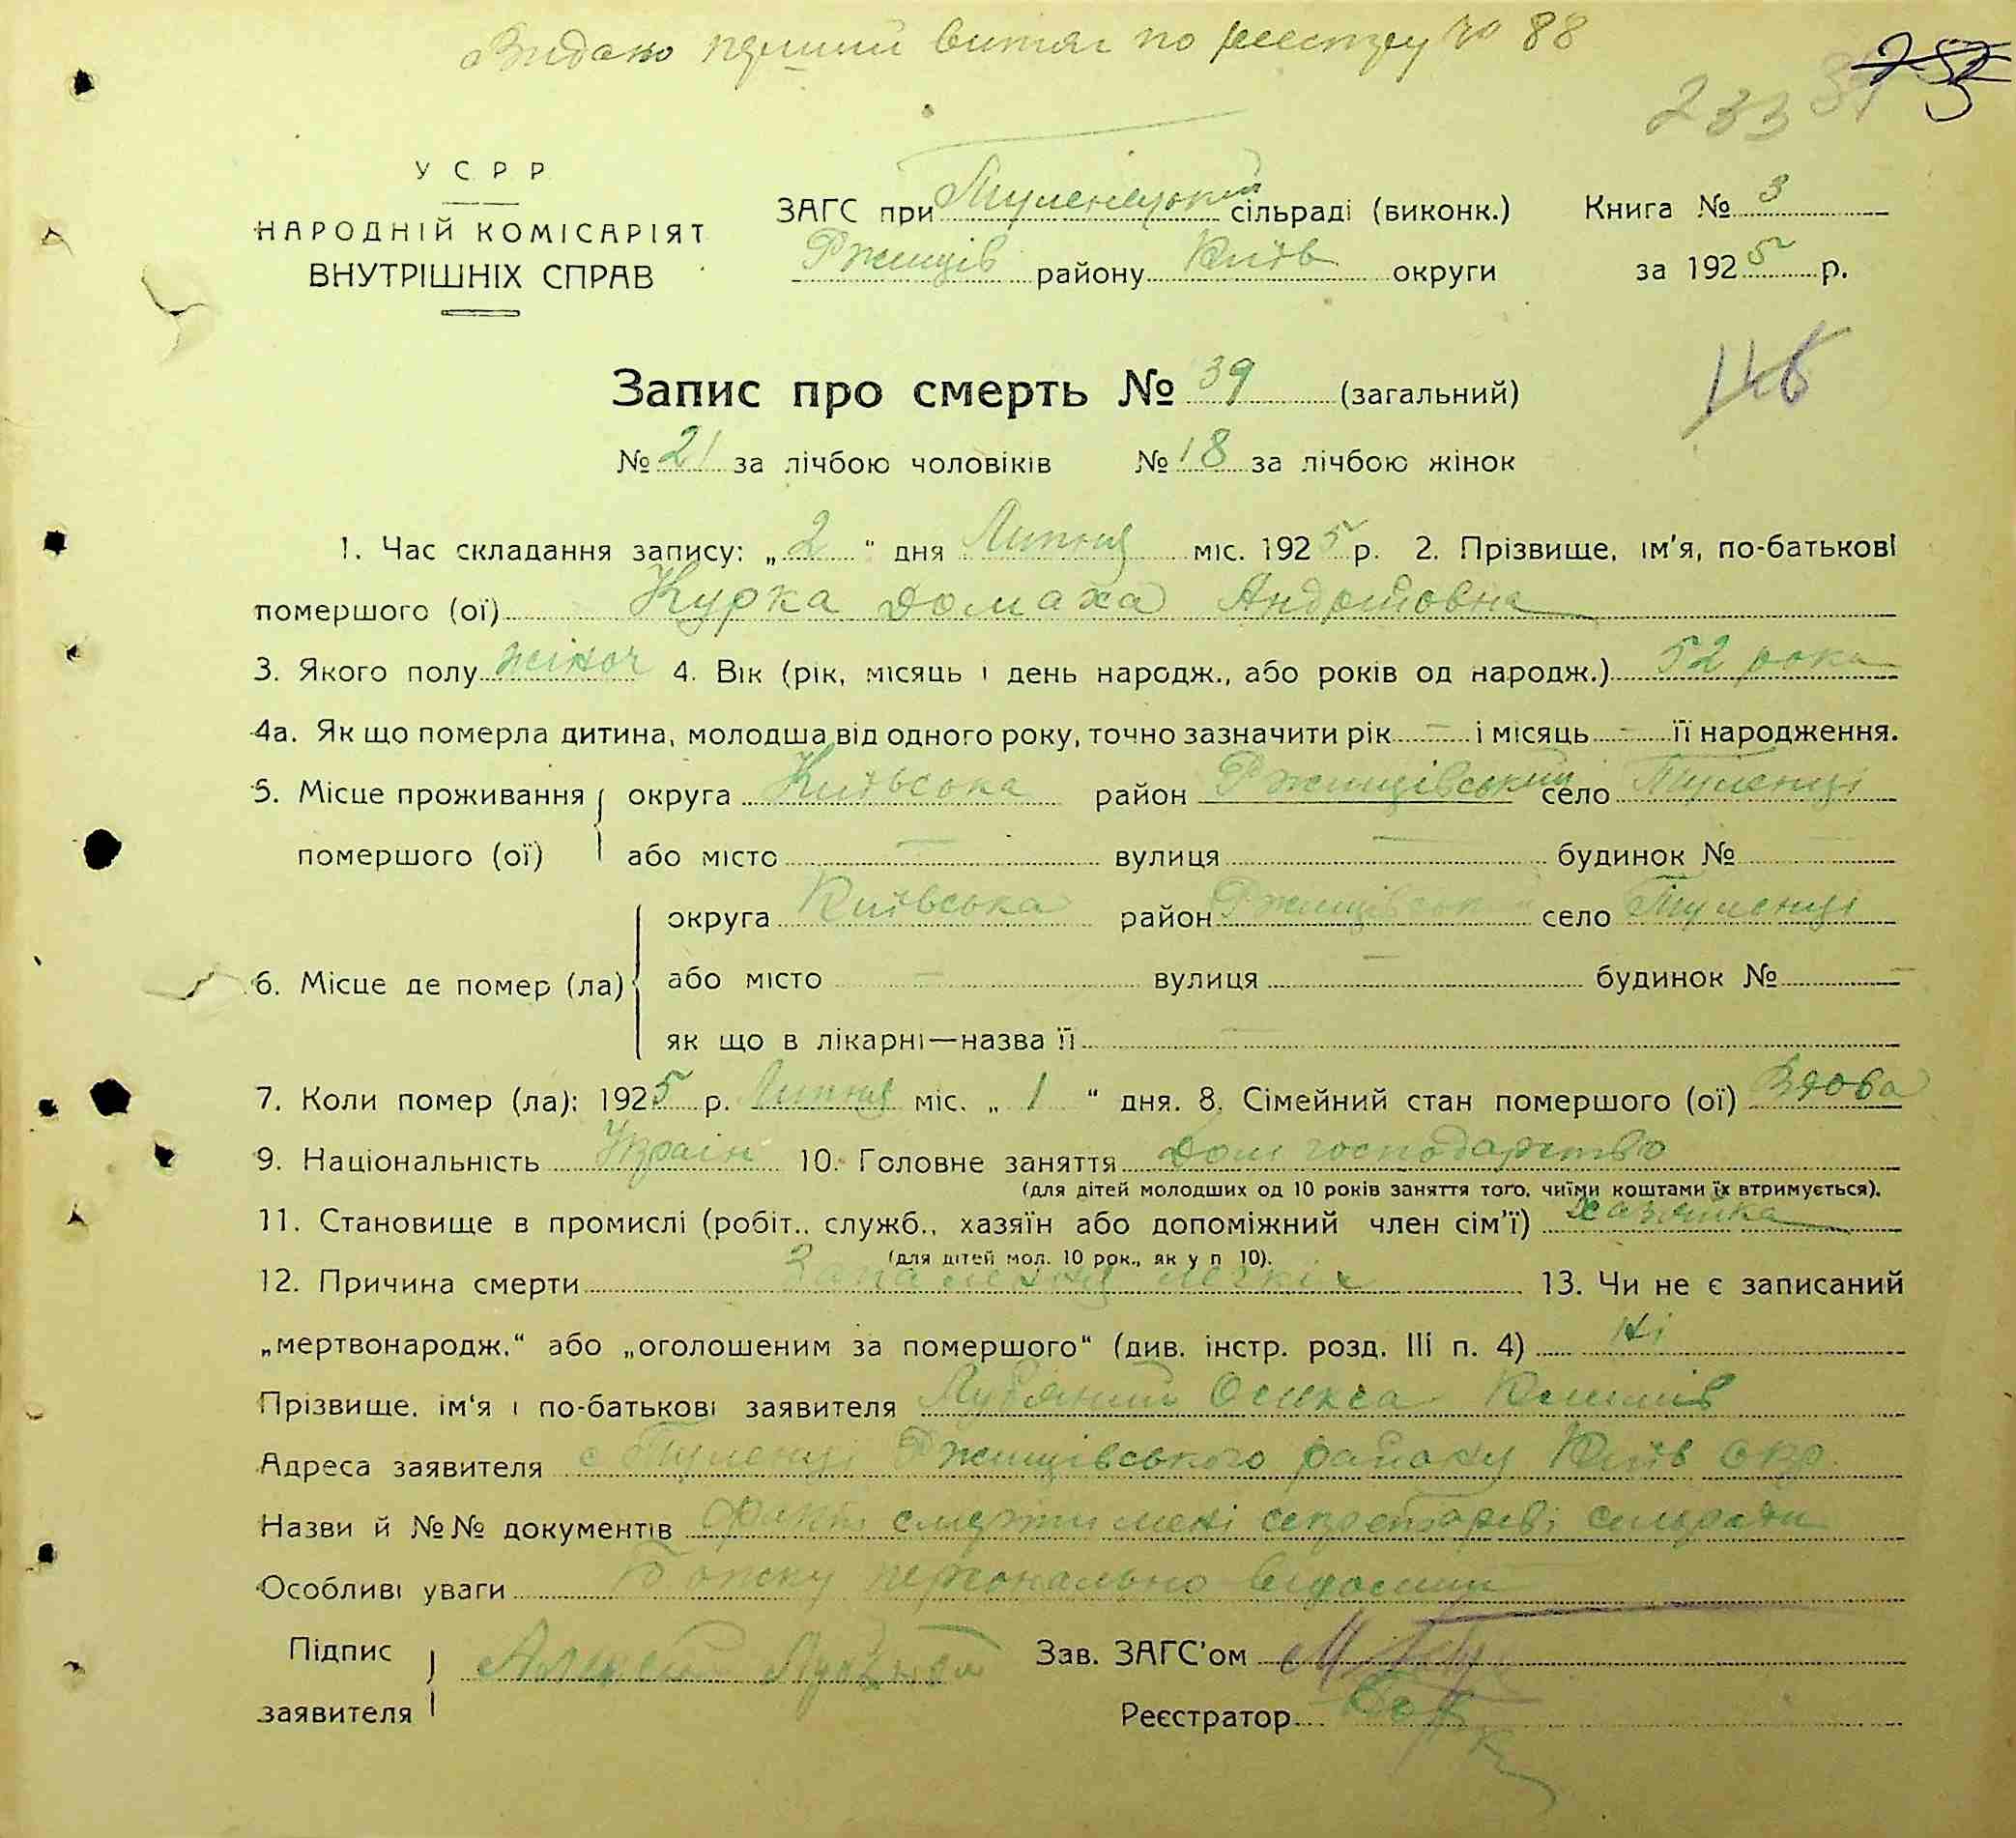 Видано перший витяг по реєстру № 88
252
233
У С Р Р
НАРОДНІЙ КОМІСАРІЯТ
ВНУТРІШНІХ СПРАВ
ЗАГС при Пуленецькій сільраді (виконк.) Книга № 3
Ржищів району Київ округи за 1925 р.
146
Запис про смерть № 39 (загальний)
№ 21 за лічбою чоловіків № 18 за лічбою жінок
1. Час складання запису: „ 2 “ дня Липня міс. 1925 р. 2. Прізвище, ім'я, по-батькові
помершого (ої) Курка Домаха Андріовна
3. Якого полу жіноч 4. Вік (рік, місяць і день народж., або років од народж.) 52 роки
4а. Як що померла дитина, молодша від одного року, точно зазначити рік — і місяць — її народження.
5. Місце проживання округа Київська район Ржищівський село Пуленці
помершого (ої) або місто — вулиця — будинок №
округа Київська район Ржищівськ село Пуленці
6. Місце де помер (ла) або місто — вулиця — будинок № —
як що в лікарні—назва її —
7. Коли помер (ла): 1925 р. Липня міс. „ 1 “ дня. 8. Сімейний стан помершого (ої) Вдова
9. Національність Україн 10. Головне заняття Дом господарство
(для дітей молодших од 10 років заняття того, чиїми коштами їх втримується).
11. Становище в промислі (робіт., служб., хазяїн або допоміжний член сім'ї) хазяйка
(для дітей мол. 10 рок., як у п 10).
12. Причина смерти Запалення легкіх 13. Чи не є записаний
„мертвонародж.“ або „оголошеним за помершого“ (див. інстр. розд. III п. 4) Ні
Прізвище, ім'я і по-батькові заявителя Климів
Адреса заявителя с Пуленці Ржищівського району Київ Окр
Назви й №№ документів Факт смерти мені секретареві сільради
Особливі уваги персонально відомий
Підпис
заявителя
Зав. ЗАГС'ом
Реєстратор